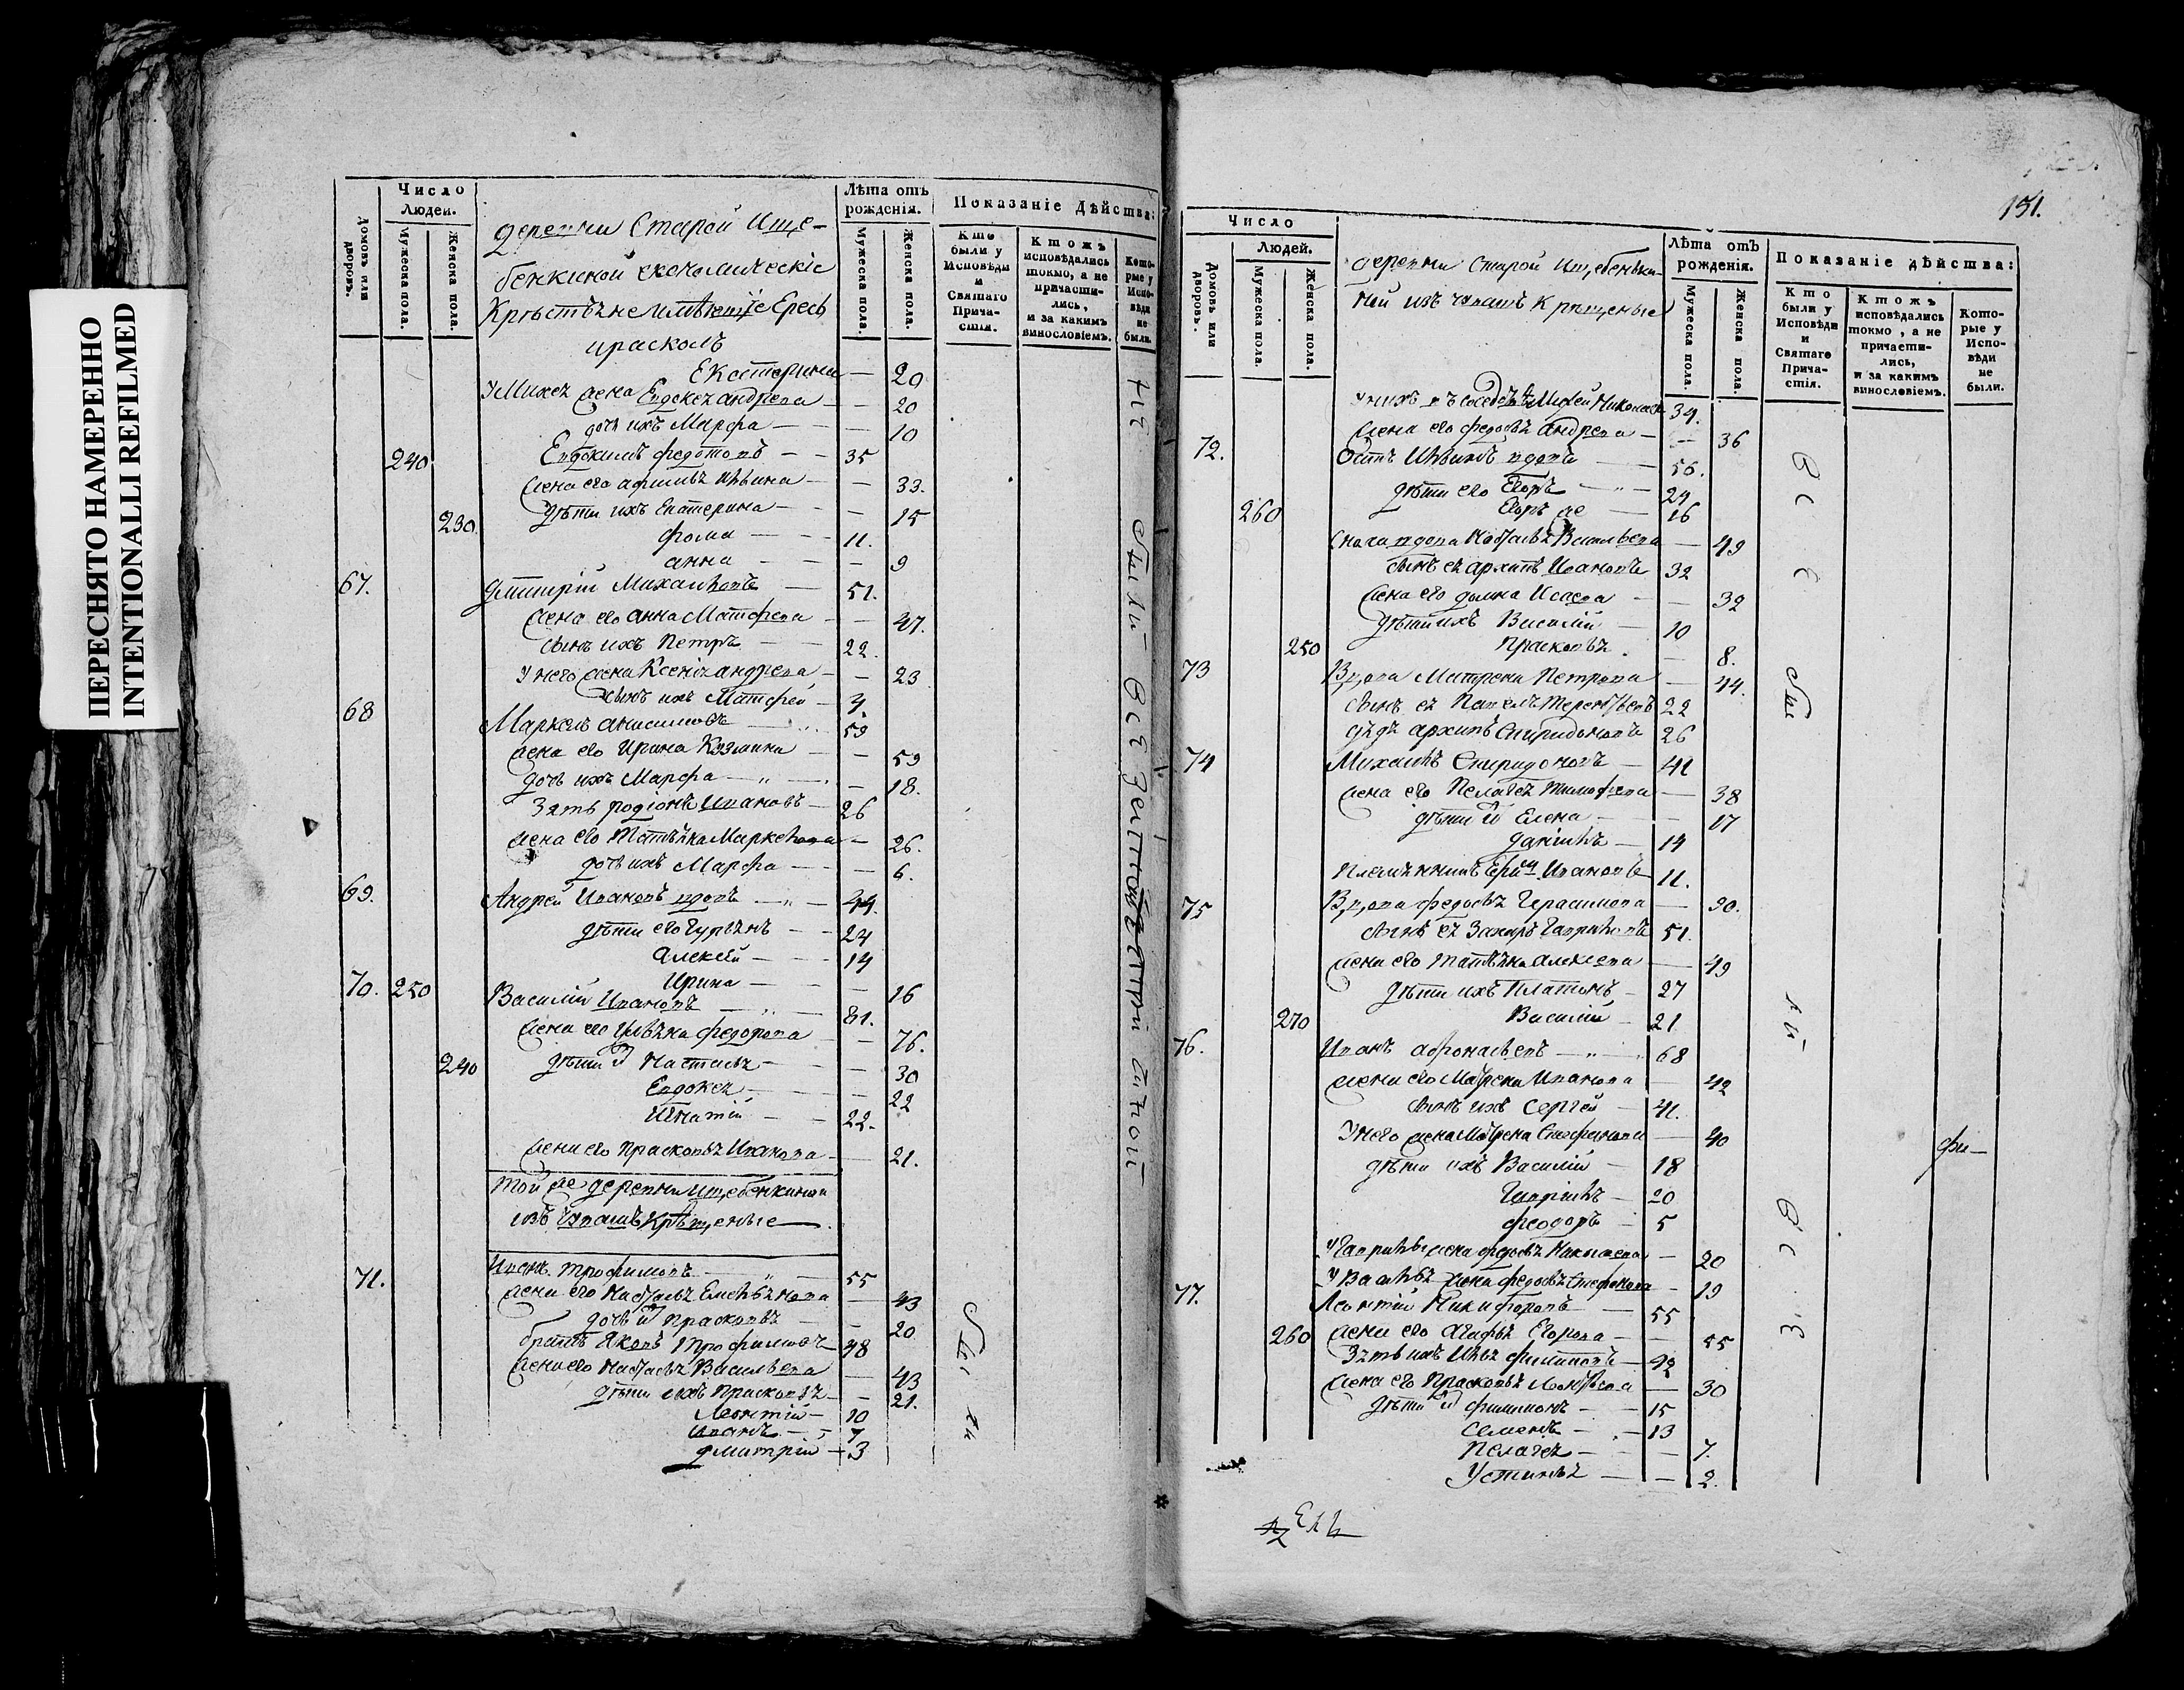 ПЕРЕСНЯТО НАМЕРЕННО
INTENTIONALLI REFILMED
Число
Людей.
Домовъ или дворовъ.
Мужеска пола.
Женска пола.
Лѣта отъ рожденія.
Мужеска пола.
Женска пола.
Показаніе Дѣйства:
Кто были у Исповѣди и Святаго Причастія.
Ктожъ исповѣдались токмо, а не причастились, и за какимъ винословіемъ.
Которые у Исповѣди не были.
деревни Старой Ище-
бенкиной економическіе
Крестьяне имѣющіе Ересь
ирасколъ
Екатерина — 20
дочь ихъ Марфа — 10
240 Евдокимъ федотовъ — 35
33.
230 дѣти ихъ Екатерина — 15
фома — 11.
анна — 9
67. Дмитрій Михаиловъ — 51.
жена его анна Матфева — 47.
сынъ ихъ Петръ — 22.
у него жена Ксенія андрева — 23
сынъ ихъ Матфей — 4
68 Маркелъ анисимовъ — 59
жена его Ирина Козмина — 59
дочь ихъ Марфа — 18.
Зять родіонъ Ивановъ — 26
жена его Татьяна Маркелова — 26.
дочь ихъ Марфа — 6.
69. Андрей Ивановъ вдовъ — 44.
дѣти его Гурьянъ — 24
Алексей — 14
Ирина — 16
70. 250 Василій Ивановъ — 81.
жена его Ульяна федорова — 76.
240 дѣти Настасья — 30
Евдокея — 22
Игнатій — 22.
жена его Прасковья Иванова — 21.
Той же деревни Ищебенкиной
изъ Чувашъ Крѣщеные
71. Иванъ трофимовъ — 55
жена его Настасья Емельянова — 43
дочь Прасковья — 20
братъ Яковъ Трофимовъ — 48
жена его Настасья Васильева — 43
дѣти ихъ Прасковья — 21.
Леонтій — 10
Иванъ — 7
Дмитрій — 3
131.
Число
Людей.
Домовъ или дворовъ.
Мужеска пола.
Женска пола.
Лѣта отъ рожденія.
Мужеска пола.
Женска пола.
Показаніе дѣйства:
Кто были у Исповѣди и Святаго Причастія.
Ктожъ исповѣдались токмо, а не причастились, и за какимъ винословіемъ.
Которые у Исповѣди не были.
деревни Старой Ищебенки-
ной изъ чувашъ Крещеные
34.
жена его федосья андрева — 36
72. вдовъ — 56.
дѣти его Егоръ — 24
260 Егоръ же — 16
Сноха вдова Настасья Васильева — 49
сынъ ея архипъ Ивановъ 32
жена его домна Исаева — 32
дѣти ихъ Василій — 10
250 Прасковья — 8.
73 Вдова Матрена Петрова — 44.
сынъ ея Павелъ Терентьевъ 22
дядя архипъ Спиридоновъ 26
74 Михаилъ Спиридоновъ — 41
жена его Пелагея Тимофева — 38
дѣти Елена — 17
Данилъ — 14
Племянникъ Ивановъ 11.
75 Вдова федосья Герасимова — 90.
сынъ ея Захаръ Гавриловъ 51.
жена его Татьяна алексева — 49
дѣти ихъ Платонъ — 27
270 Василій — 21
76. Иванъ афонасьевъ — 68
жена его Матрена Иванова — 42
сынъ ихъ Сергей — 41.
У него жена Матрена Стефанова — 40
дѣти ихъ Василій — 18
Гаврилъ — 20
феодоръ — 5
У Гаврилы жена федосья — 20
У Василья жена федосья Стефанова — 19
77. Леонтій Никифоровъ — 55
260 жена его агафья Егорова — 55
Зять ихъ Илья филиповъ — 42
жена его Прасковья Леонтьева — 30
дѣти филимонъ — 15
Семенъ — 13
Пелагея — 7.
Устинья — 2.